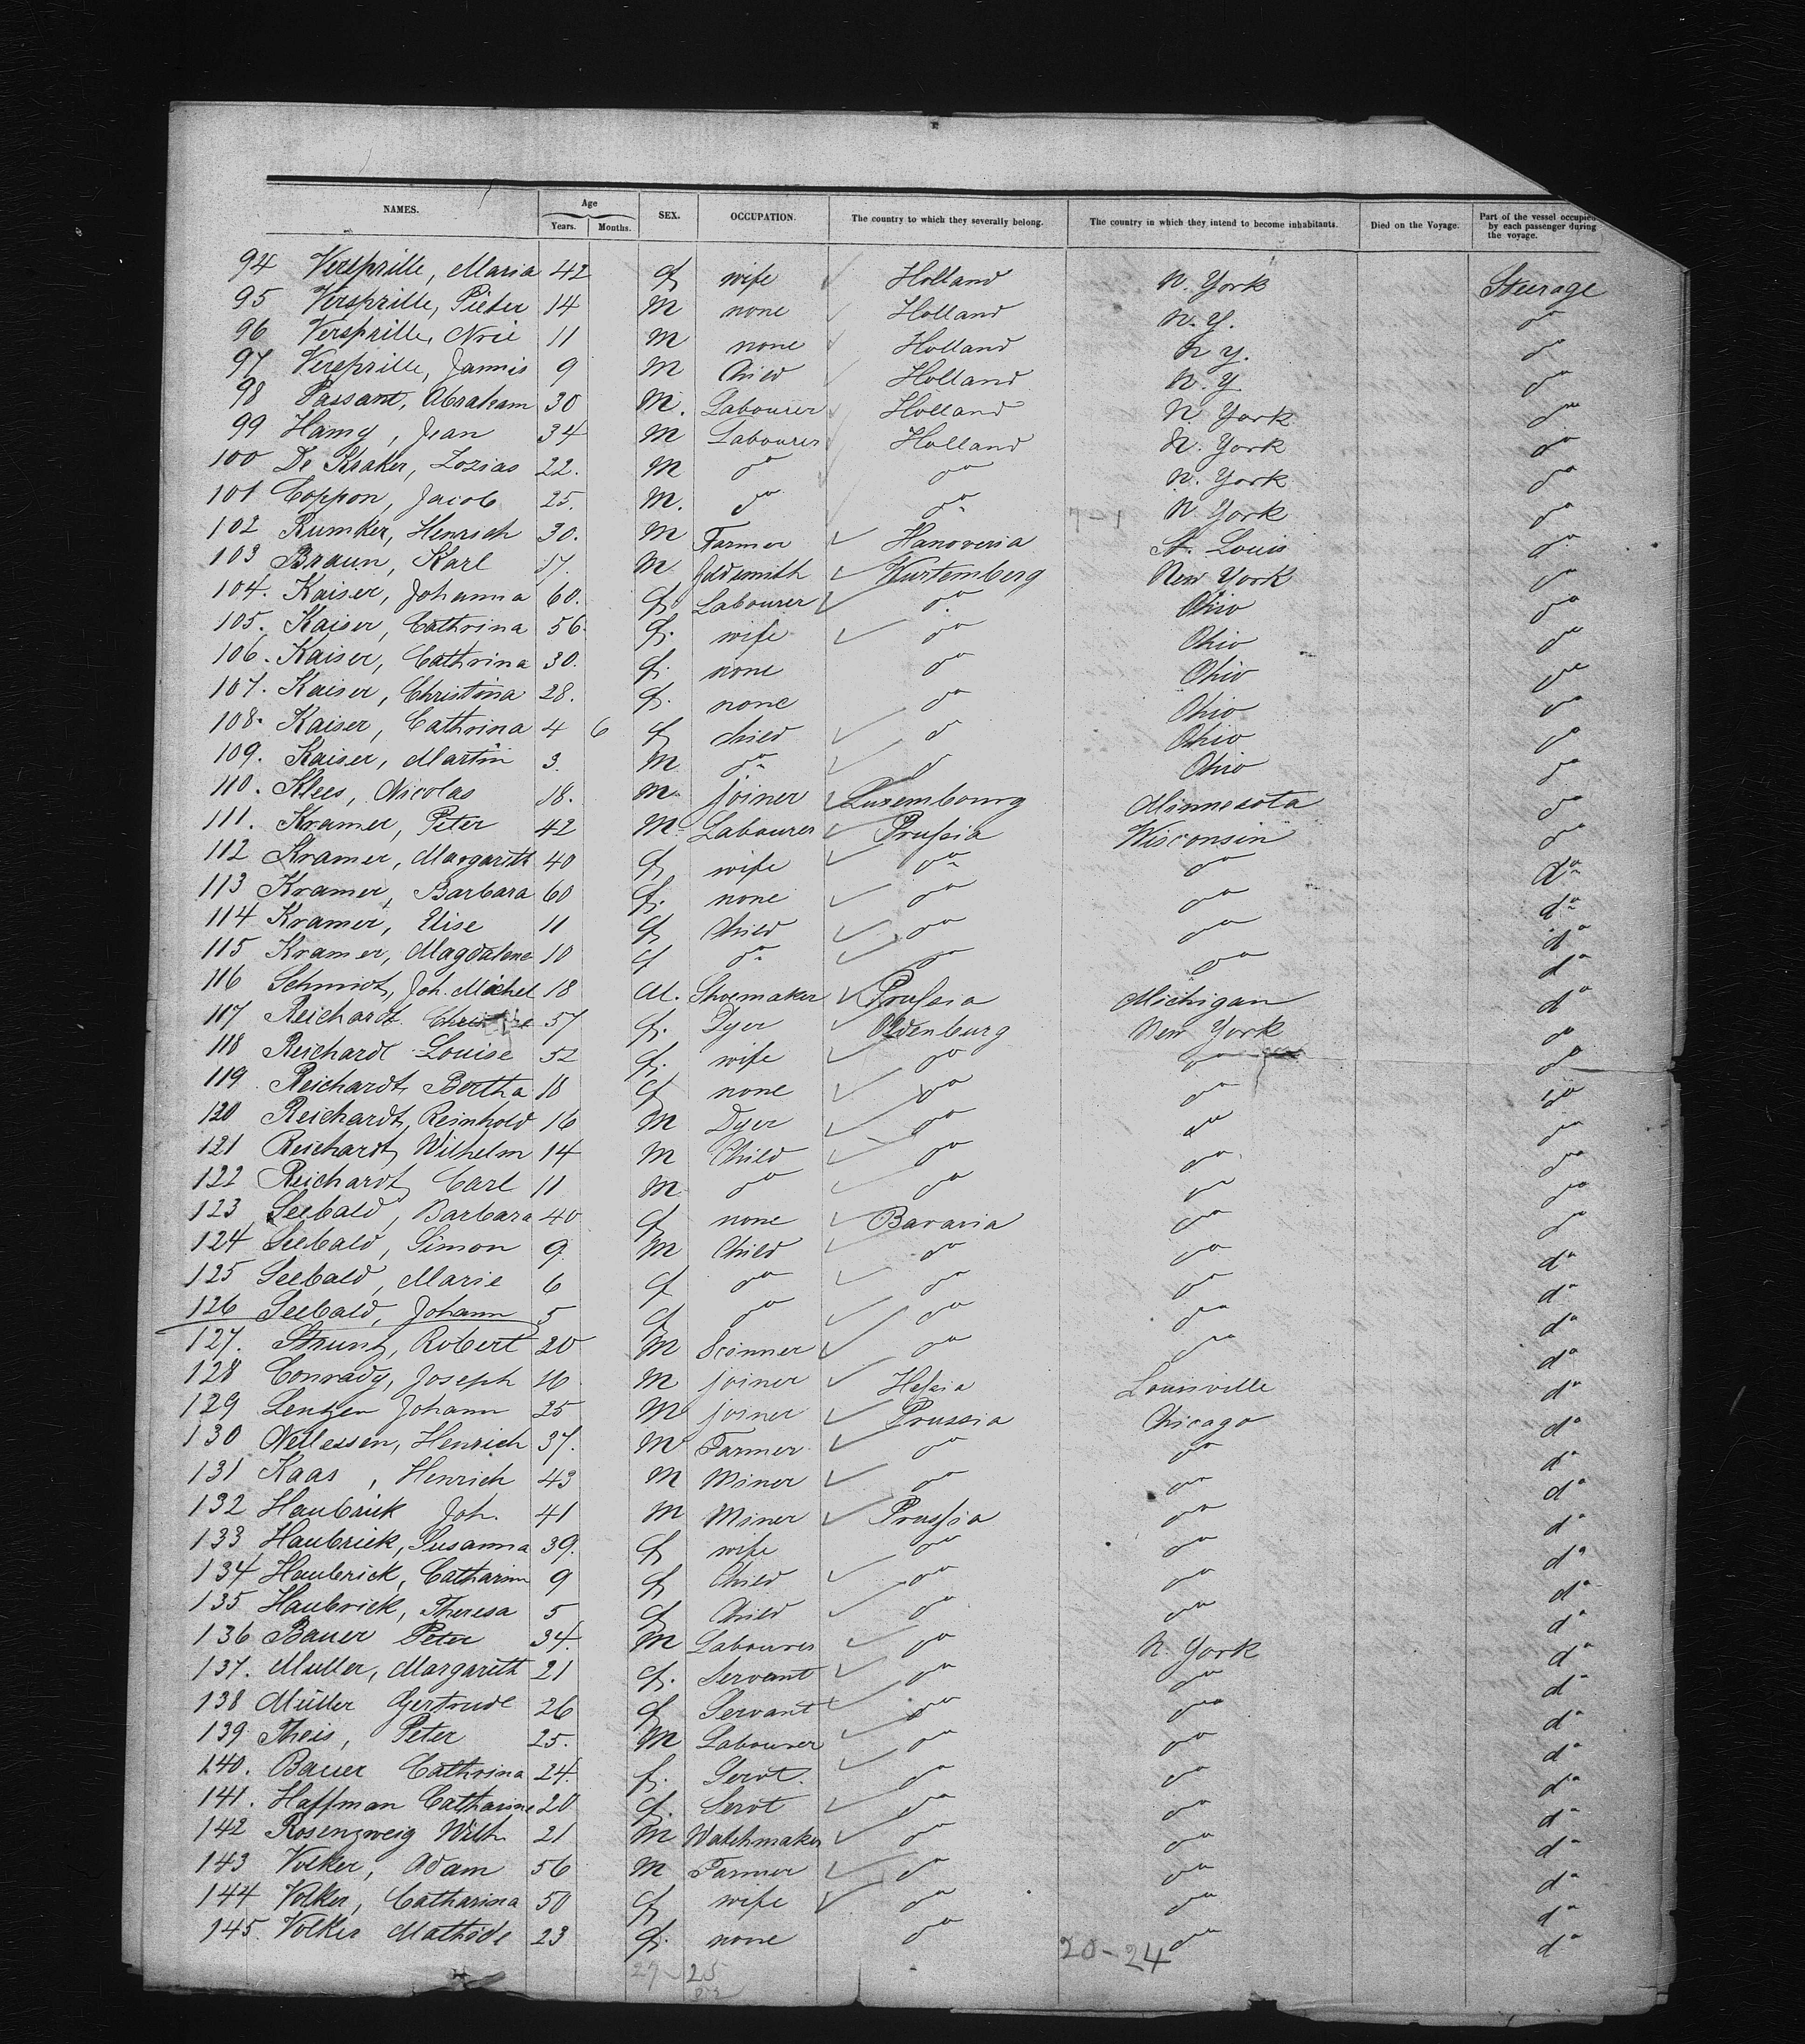 NAMES. Age Years. Months. SEX. OCCUPATION. The country to which they severally belong. The country in which they intend to become inhabitants. Died on the Voyage. Part of the vessel occupied by each passenger during the voyage.
94 Versprille, Maria 42 f wife Holland N. York Steerage
95 Versprille, Pieter 14 M none Holland N.Y. do
96 Versprille, 11 M none Holland N Y. do
97 Versprille, Jannis 9 M Child Holland N.Y. do
98 Passant, Abraham 30 M. Labourer Holland N. York do
99 Hamy, Jean 34 M Labourer Holland N. York do
100 De Kraker, Lozias 22. M do do N. York do
101 Coppon, Jacob 25. M. do do N York do
7-1
102 Rumker, Henrich 30. M Farmer Hanoveria St. Louis do
103 Braun, Karl M Goldsmith Wurtemberg New York do
104. Kaiser, Johanna 60. f. Labourer do Ohio do
105. Kaiser, Cathrina 56. f. wife do Ohio do
106. Kaiser, Cathrina 30. f. none do Ohio do
107. Kaiser, Christina 28. f. none do Ohio do
108. Kaiser, Cathrina 4 6 f child do Ohio do
109. Kaiser, Martin 3. M do do Ohio do
110. Klees, Nicolas 18. M. joiner Luxembourg Minnesota do
111. Kramer, Peter 42 M. Labourer Prussia Wisconsin do
112 Kramer, Margarith 40 f wife do do do
113 Kramer, Barbara 60 f. none do do do
114 Kramer, Elise 11 f Child do do do
115 Kramer, Magdalene 10 f do do do do
116 Schmidt, Joh. Michel 18 M. Shoemaker Prussia Michigan do
117 Reichardt 57 f. Dyer Oldenburg New York do
118 Reichardt Louise 52 f. wife do do do
119. Reichardt Bertha 18 f none do do do
120 Reichardt, Reinhold 16 M Dyer do do do
121 Reichardt, Wilhelm 14 M Child do do do
122 Reichardt, Carl 11 M do do do do
123 Seebald, Barbara 40 f none Bavaria do do
124 Seebald, Simon 9 M Child do do do
125 Seebald, Marie 6 f do do do do
126 Seebald, Johann 5 f do do do do
127. Strunz, Robert 20 M do do do
128 Conrady, Joseph M joiner Hessia Louisville do
129 Lentzen Johann 25 M joiner Prussia Chicago do
130 Nellessen, Henrich 37. M Farmer do do do
131 Kaas, Henrich 43 M Miner do do do
132 Haubrick Joh. 41 M Miner Prussia do do
133 Haubrick, Susanna 39. f wife do do do
134 Haubrick, Catharin 9 f Child do do do
135 Haubrick, Theresa 5 f Child do do do
136 Bauer Peter 34. M Labourer do N. York do
137. Muller, Margarith 21 f. Servant do do do
138 Müller Gertrude 26 f Servant do do do
139. Theis, Peter 25. M Labourer do do do
140. Bauer Cathrina 24. f. Servt. do do do
141. Haffman Catharine 20 f. Servt do do do
142 Rosenzweig Wilh. 21 M Watchmaker do do do
143 Volker, Adam 56 M Farmer do do do
144 Volker, Catharina 50 f wife do do do
145. Volker Mathilde 23 f. none do do do
27-25
20-24